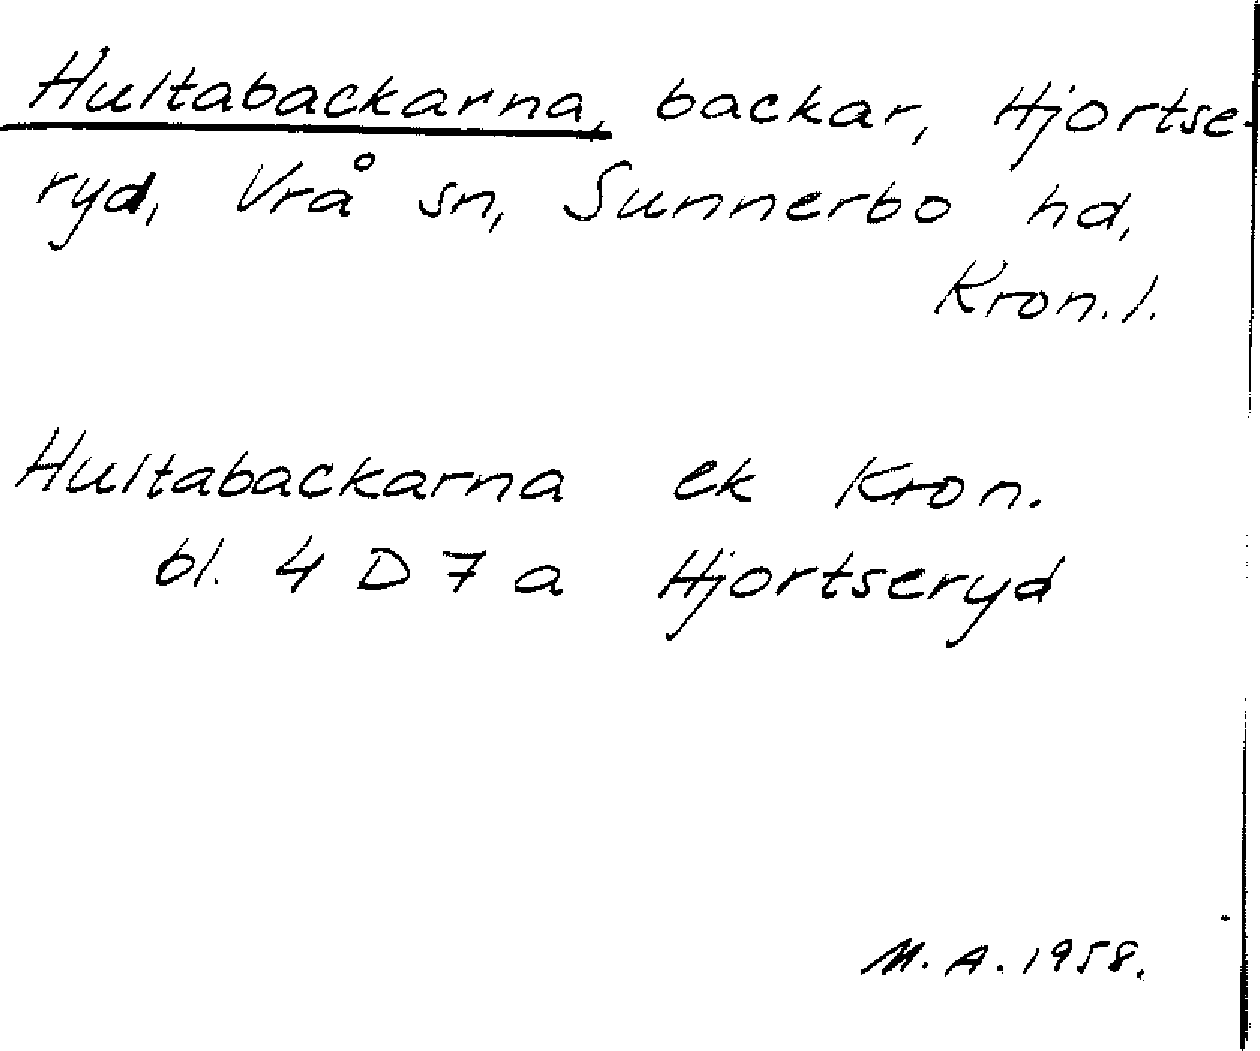 Hultabackarna, backar, Hjortse-
ryd, Vrå sn, Sunnerbo hd,
Kron. l.
Hultabackarna ek Kron.
bl. 4 D 7 a Hjortseryd
M. A. 1958.